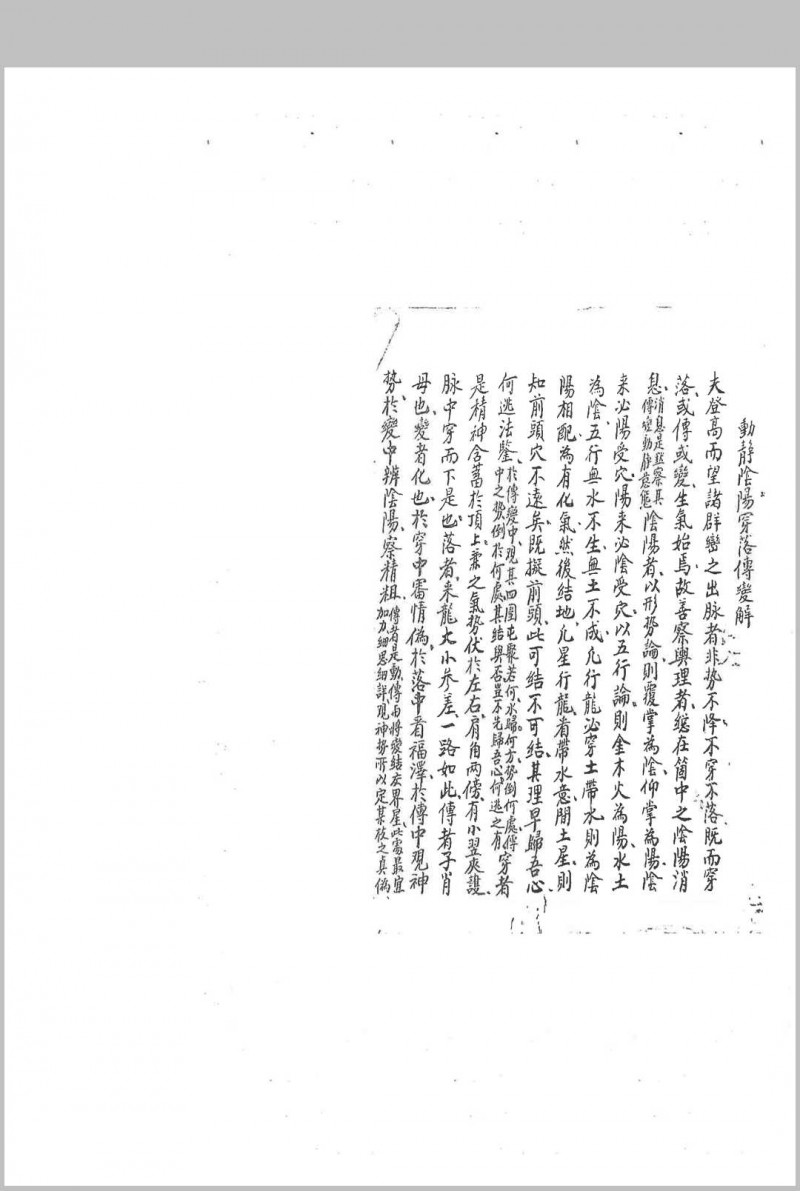 動靜陰陽穿落傳變解
夫登高而望諸群巒之出脉者非勢不降不穿不落既而穿
落或傳或變生氣始焉故善察輿理者總在箇中之陰陽消
息消息是監察其傳變動靜意態陰陽者以形勢論則覆掌為陰仰掌為陽陰
来必陽受穴陽来必陰受穴以五行論則金木火為陽水土
為陰五行無水不生無土不成凡行龍必穿土帶水則為陰
陽相配為有化氣然後結地凡星行龍者帶水意間土星則
知前頭穴不遠矣既擬前頭此可結不可結其理早歸吾心
何逃法鑒於傳變中觀其四圍屯聚若何水歸何方勢倒何處傳中之勢倒於何處其結與否豈不先歸吾心何逃之有穿者
是精神含蓄於頂上兼之氣勢伏於左右肩角兩傍有小翌夾護
脉中穿而下是也落者来龍大小参差一路如此傳者子肖
母也變者化也於穿中審情偽於落中看福澤於傳中观神
勢於變中辨陰陽察精粗傳者是動傳由將變結玄界星此處最宜加力細思細詳观神勢所以定某枝之真偽